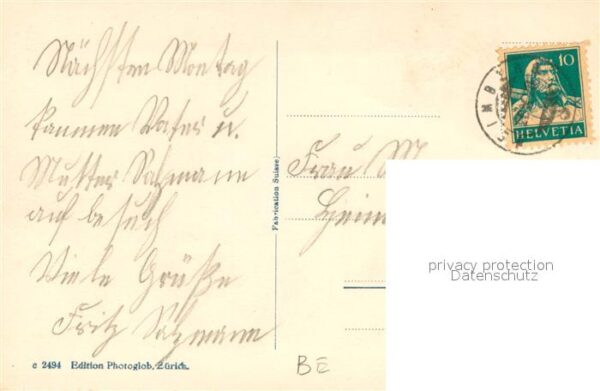 Nächsten Montag
kammen Vater u.
Mutter Salzmann
auf besuch
Viele Grüße
Fritz Salzmann
c 2494 Edition Photoglob, Zürich.
Fabrication Suisse
Frau M
Heim
10
HELVETIA
privacy protection
Datenschutz
BE